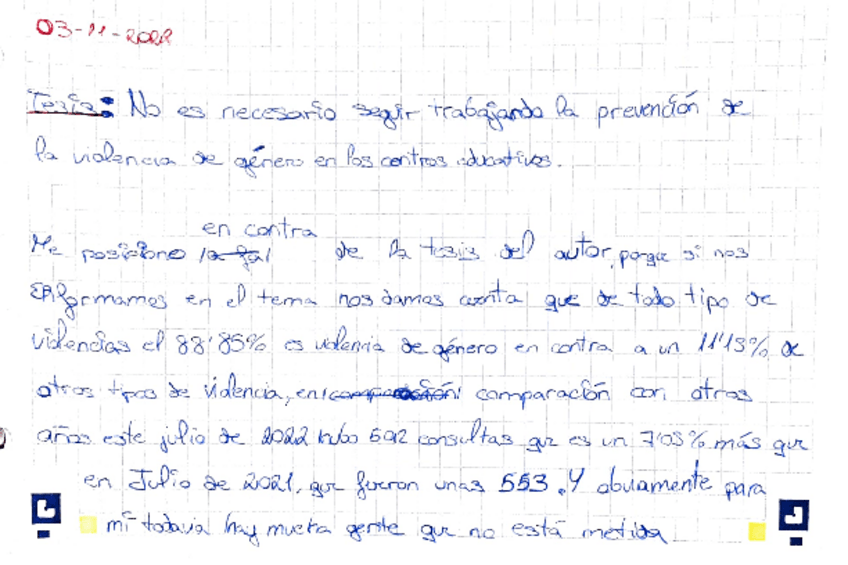 03-11-2022
Tesis: No es necesario seguir trabajando la prevención de
la violencia de género en los centros educativos.
en contra
Me posiciono de la tesis del autor, porque si nos
informamos en el tema nos damos cuenta que de todo tipo de
violencias el 88'85% es violencia de género en contra a un 11'15% de
otros tipos de violencia, en comparación con otros
años este julio de 2022 hubo 592 consultas que es un 7'05% más que
en Julio de 2021, que fueron unas 553. Y obviamente para
mí todavía hay mucha gente que no está metida